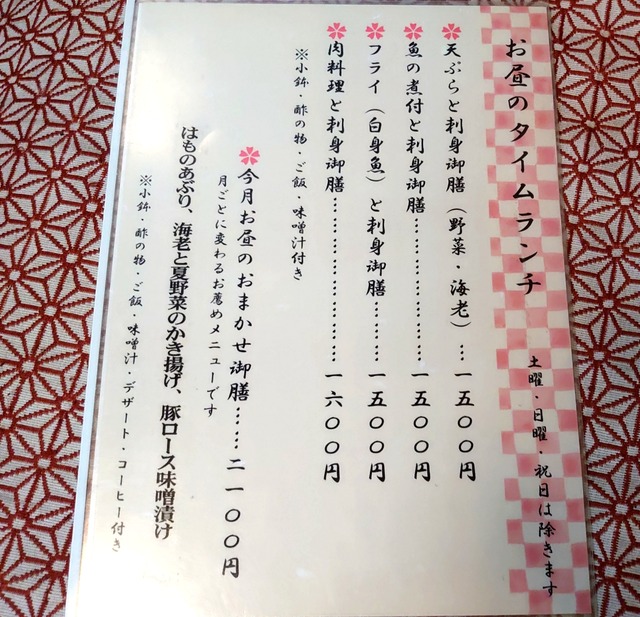 お昼のタイムランチ
土曜・日曜・祝日は除きます
天ぷらと刺身御膳（野菜・海老）…一五〇〇円
魚の煮付と刺身御膳………………一五〇〇円
フライ（白身魚）と刺身御膳………一五〇〇円
肉料理と刺身御膳…………………一六〇〇円
※小鉢・酢の物・ご飯・味噌汁付き
今月お昼のおまかせ御膳……二一〇〇円
月ごとに変わるお薦めメニューです
はものあぶり、海老と夏野菜のかき揚げ、豚ロース味噌漬け
※小鉢・酢の物・ご飯・味噌汁・デザート・コーヒー付き